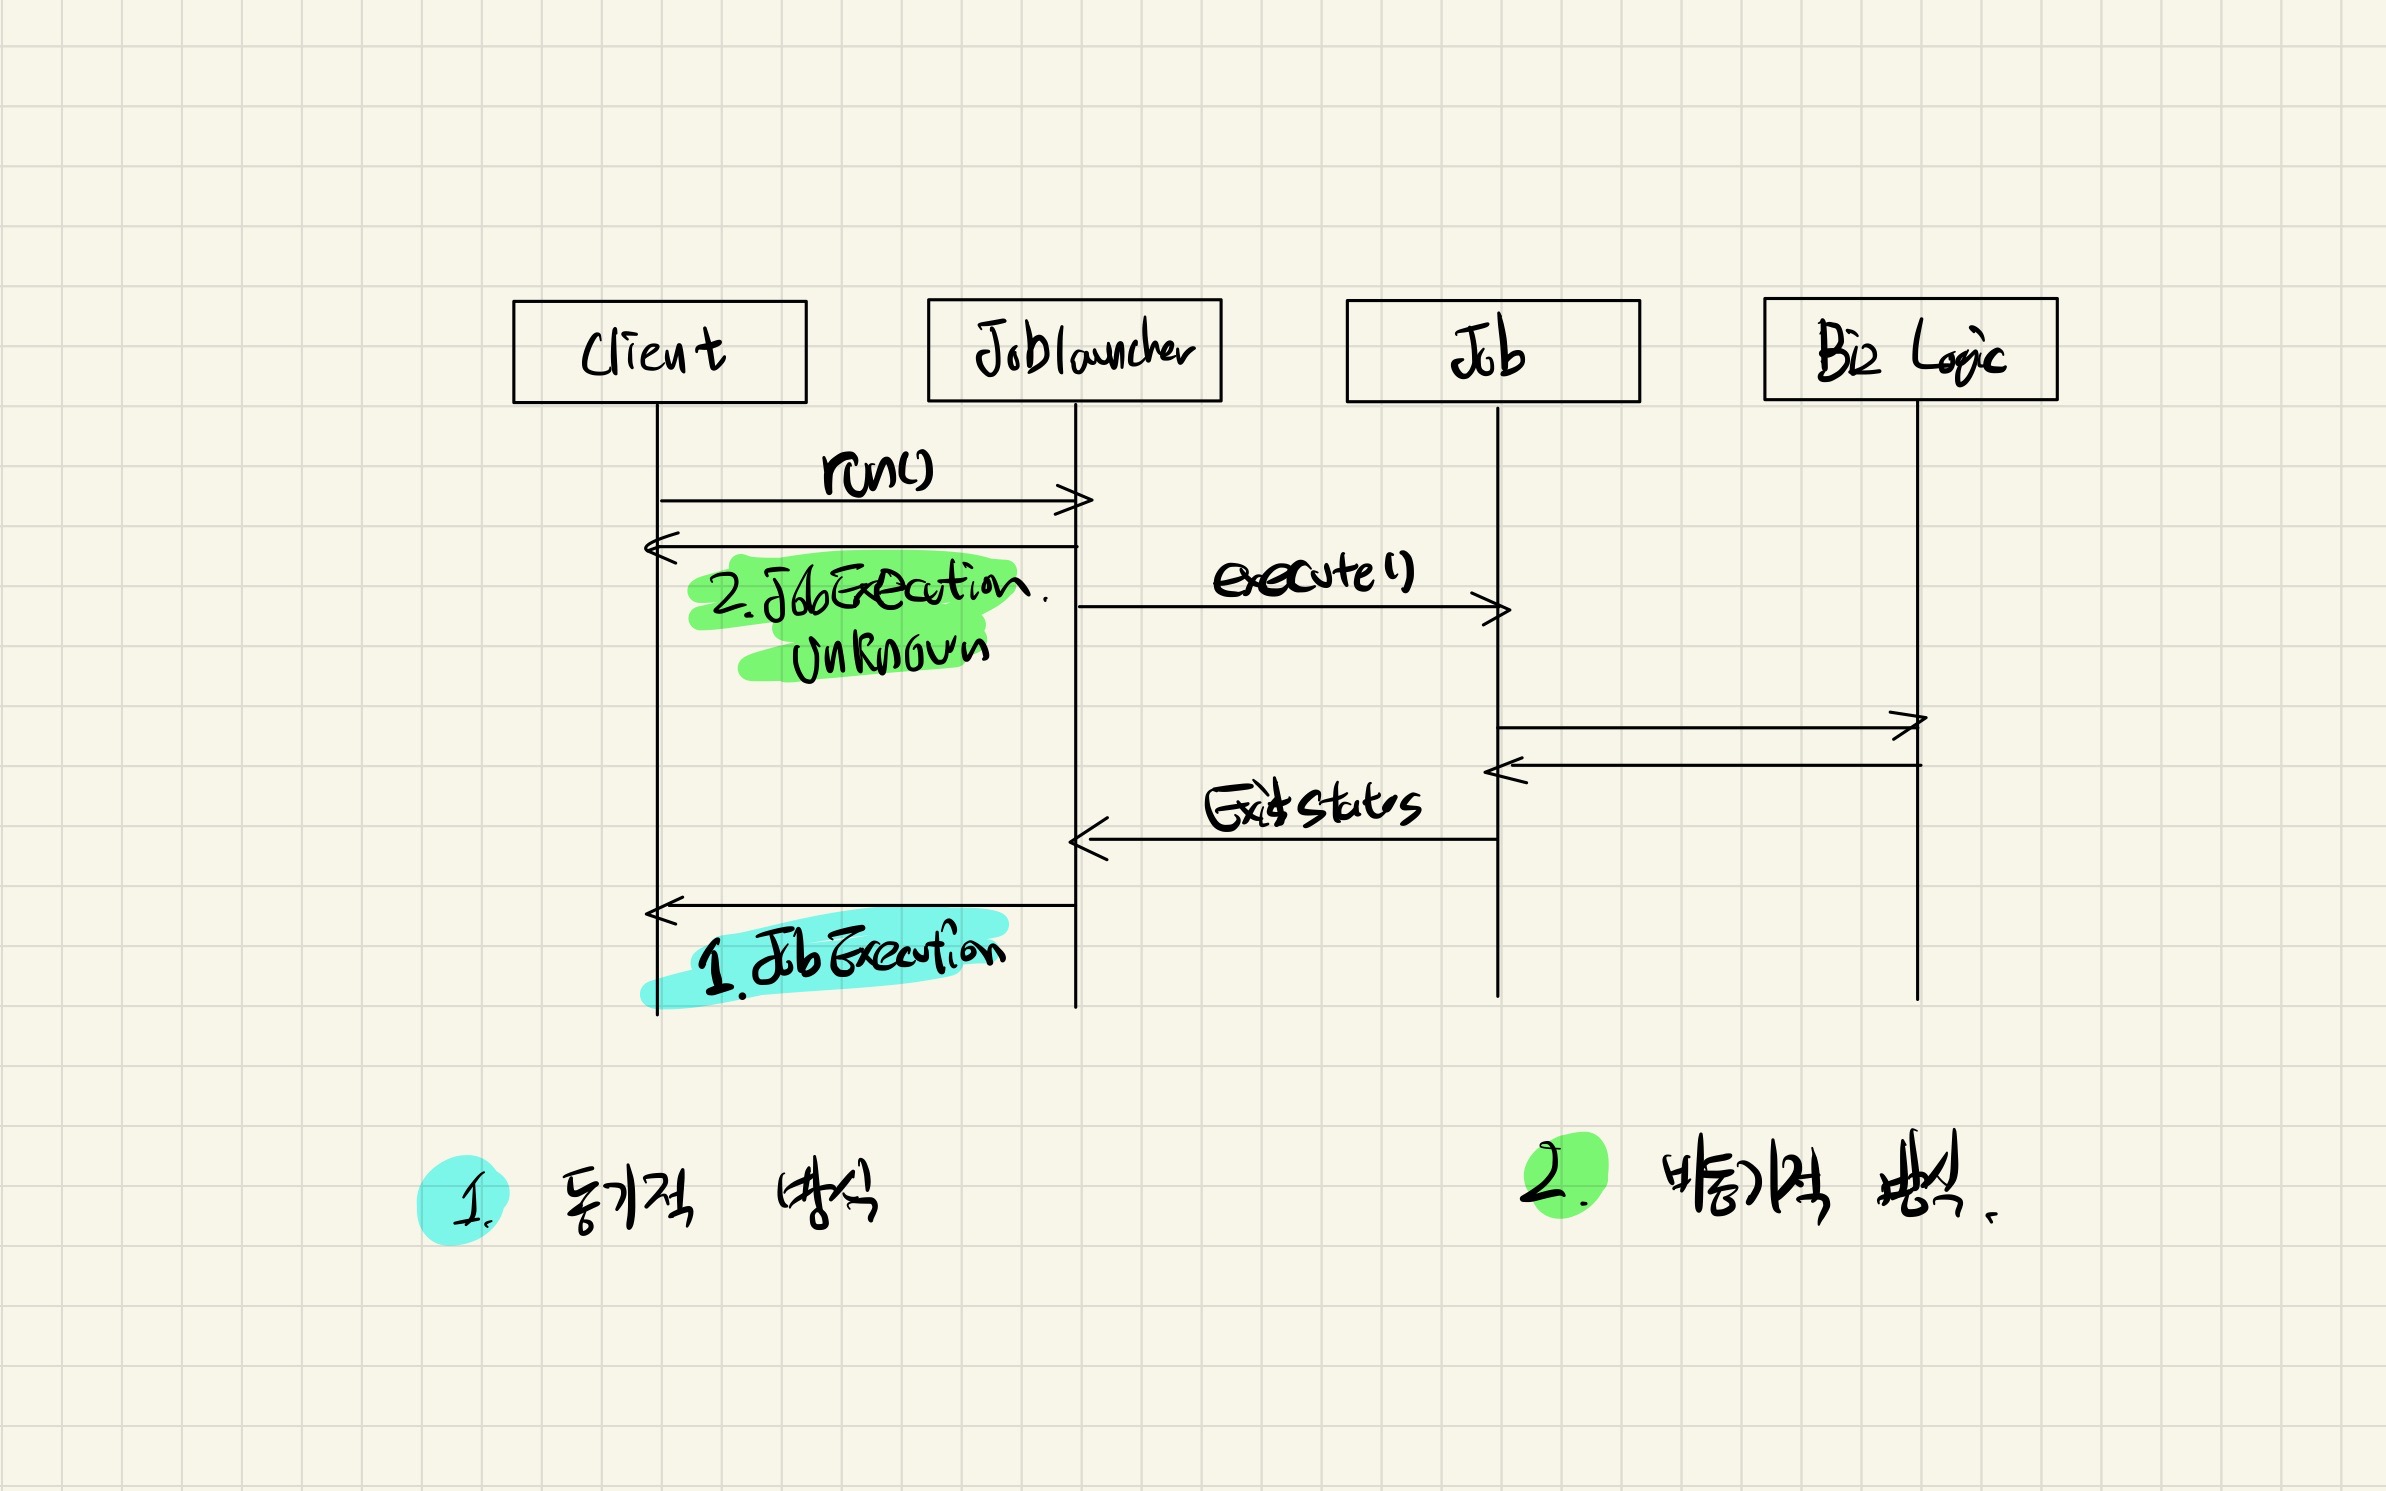 Client
Joblauncher
Job
Biz Logic
run()
2. JobExecution.
unknown
execute()
Exit status
1. JobExecution
1. 동기적 방식
2. 비동기적 방식.